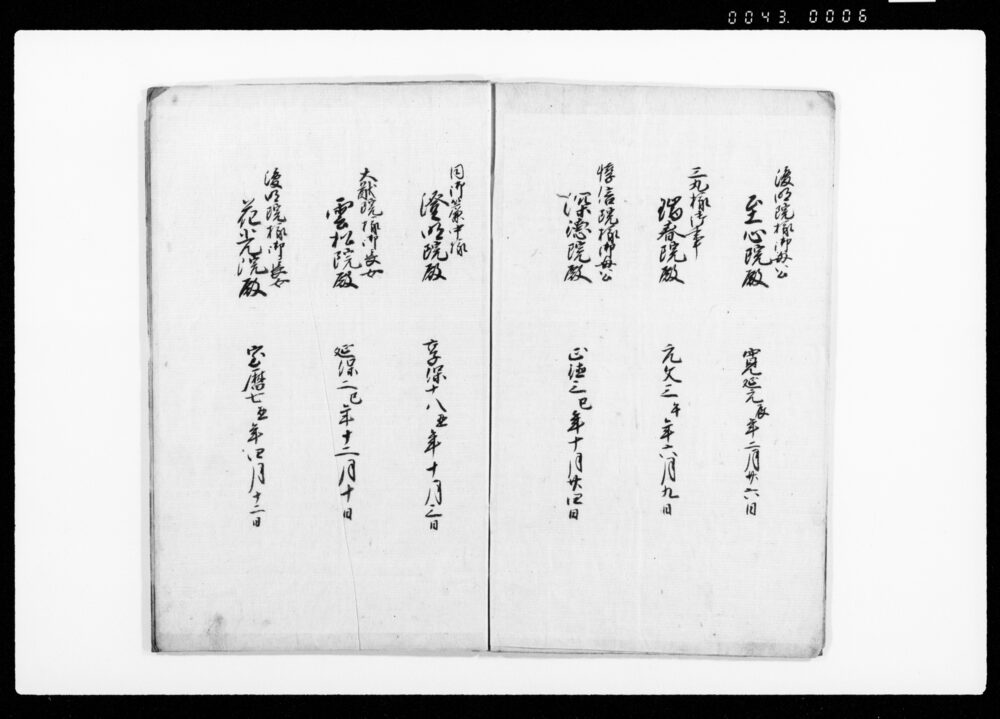 0043. 0006
浚明院様御母公
至心院殿 寛延元辰年二月廿六日
三丸様御事
瑞春院殿 元文三午年六月九日
惇信院様御母公
深徳院殿 正徳三巳年十月廿四日
同御簾中様
澄明院殿 享保十八丑年十月三日
大猷院様御長女
雲松院殿 延保二巳年十二月十日
浚明院様御長女
花光院殿 宝暦七丑年四月十二日